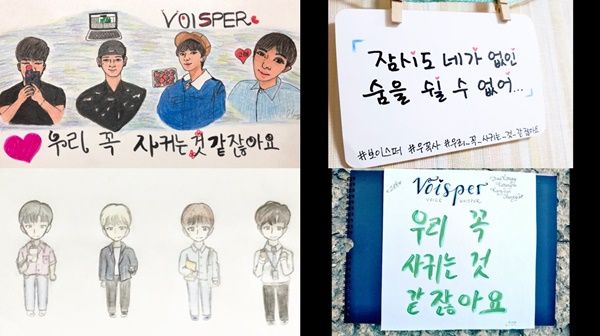 VOISPER
우리 꼭 사귀는 것 같잖아요
잠시도 네가 없인
숨을 쉴 수 없어...
#보이스퍼 #우꼭사 #우리_꼭_사귀는_것_같잖아요
Voisper
VOICE WHISPER
우리 꼭
사귀는 것
같잖아요